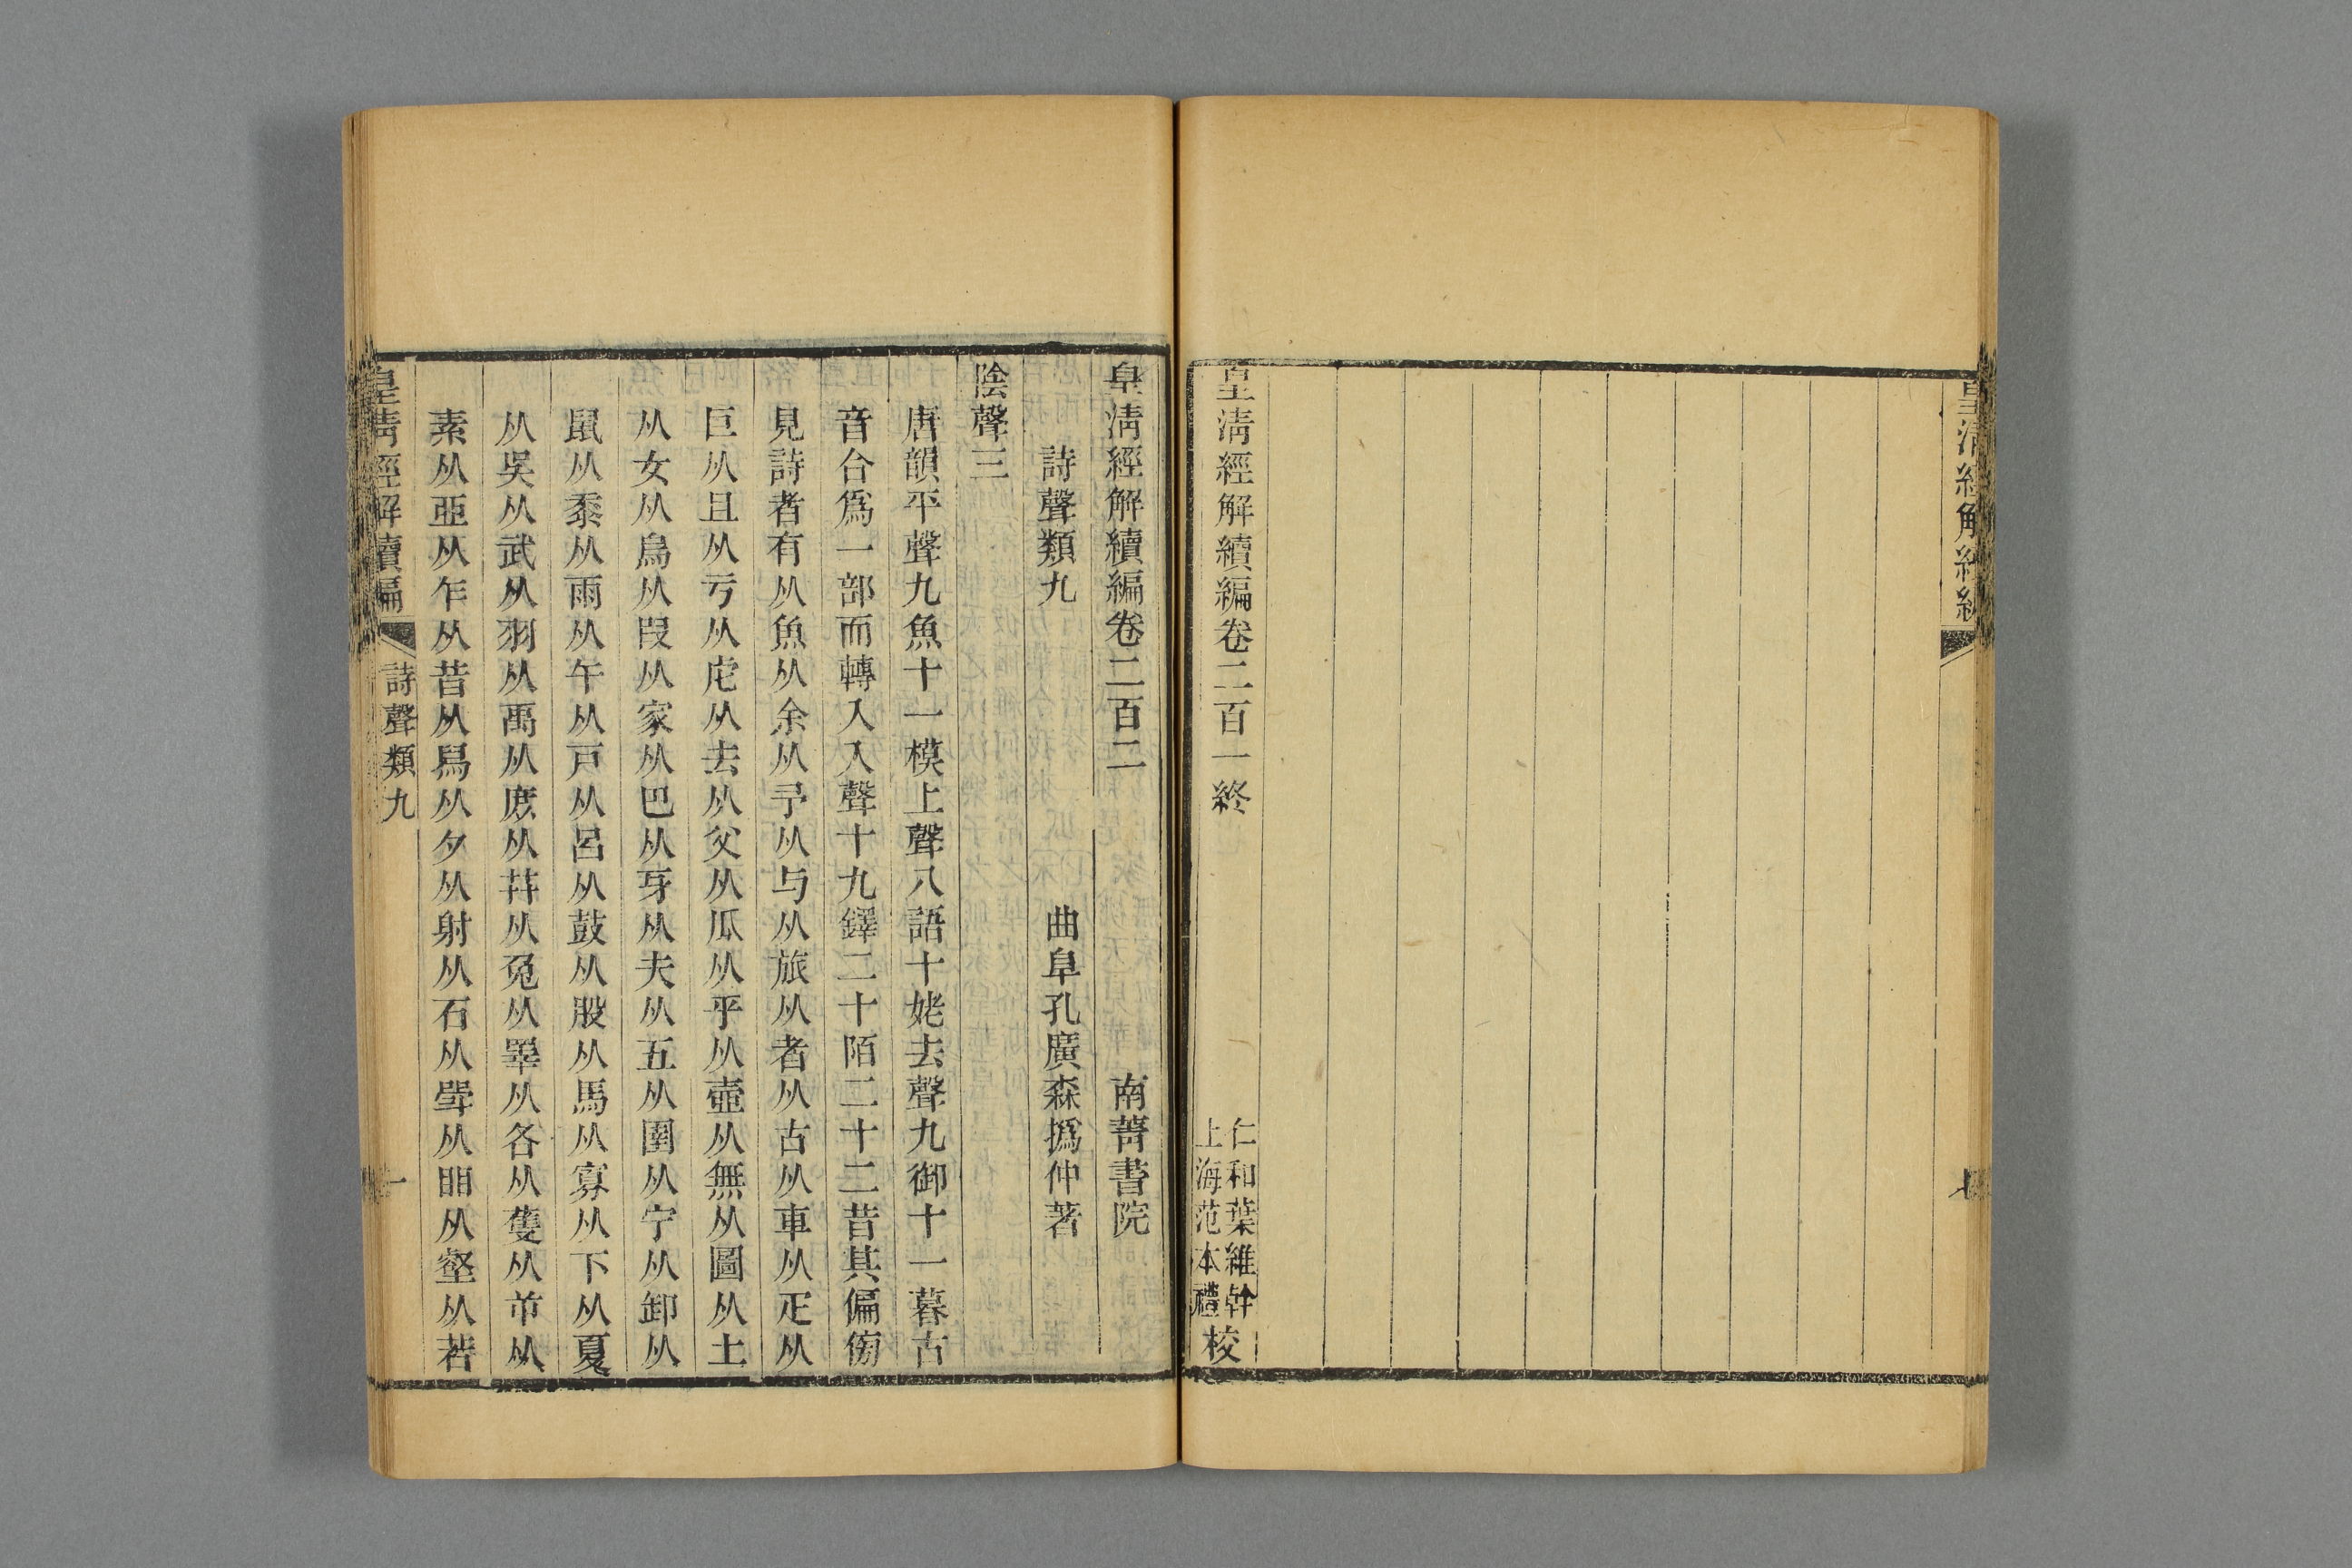 皇清經解續編
七
皇清經解續編卷二百一終
仁和葉維幹
上海范本禮
校
皇清經解續編卷二百二
南菁書院
詩聲類九
曲阜孔廣森撝仲著
陰聲三
唐韻平聲九魚十一模上聲八語十姥去聲九御十一暮古
音合爲一部而轉入入聲十九鐸二十陌二十二昔其偏傍
見詩者有从魚从余从予从与从旅从者从古从車从疋从
巨从且从亏从虍从去从父从瓜从乎从壺从無从圖从土
从女从烏从叚从家从巴从牙从夫从五从圉从宁从卸从
鼠从黍从雨从午从戸从呂从鼓从股从馬从寡从下从夏
从吳从武从羽从禹从庶从䒑从兔从睪从各从隻从帀从
素从亞从乍从昔从舄从夕从射从石从㖾从䀠从壑从若
皇清經解續編
詩聲類九
一